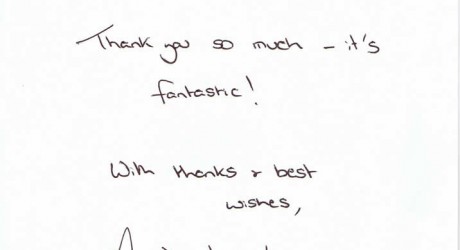 Thank you so much - it's
fantastic!
With thanks & best
wishes,